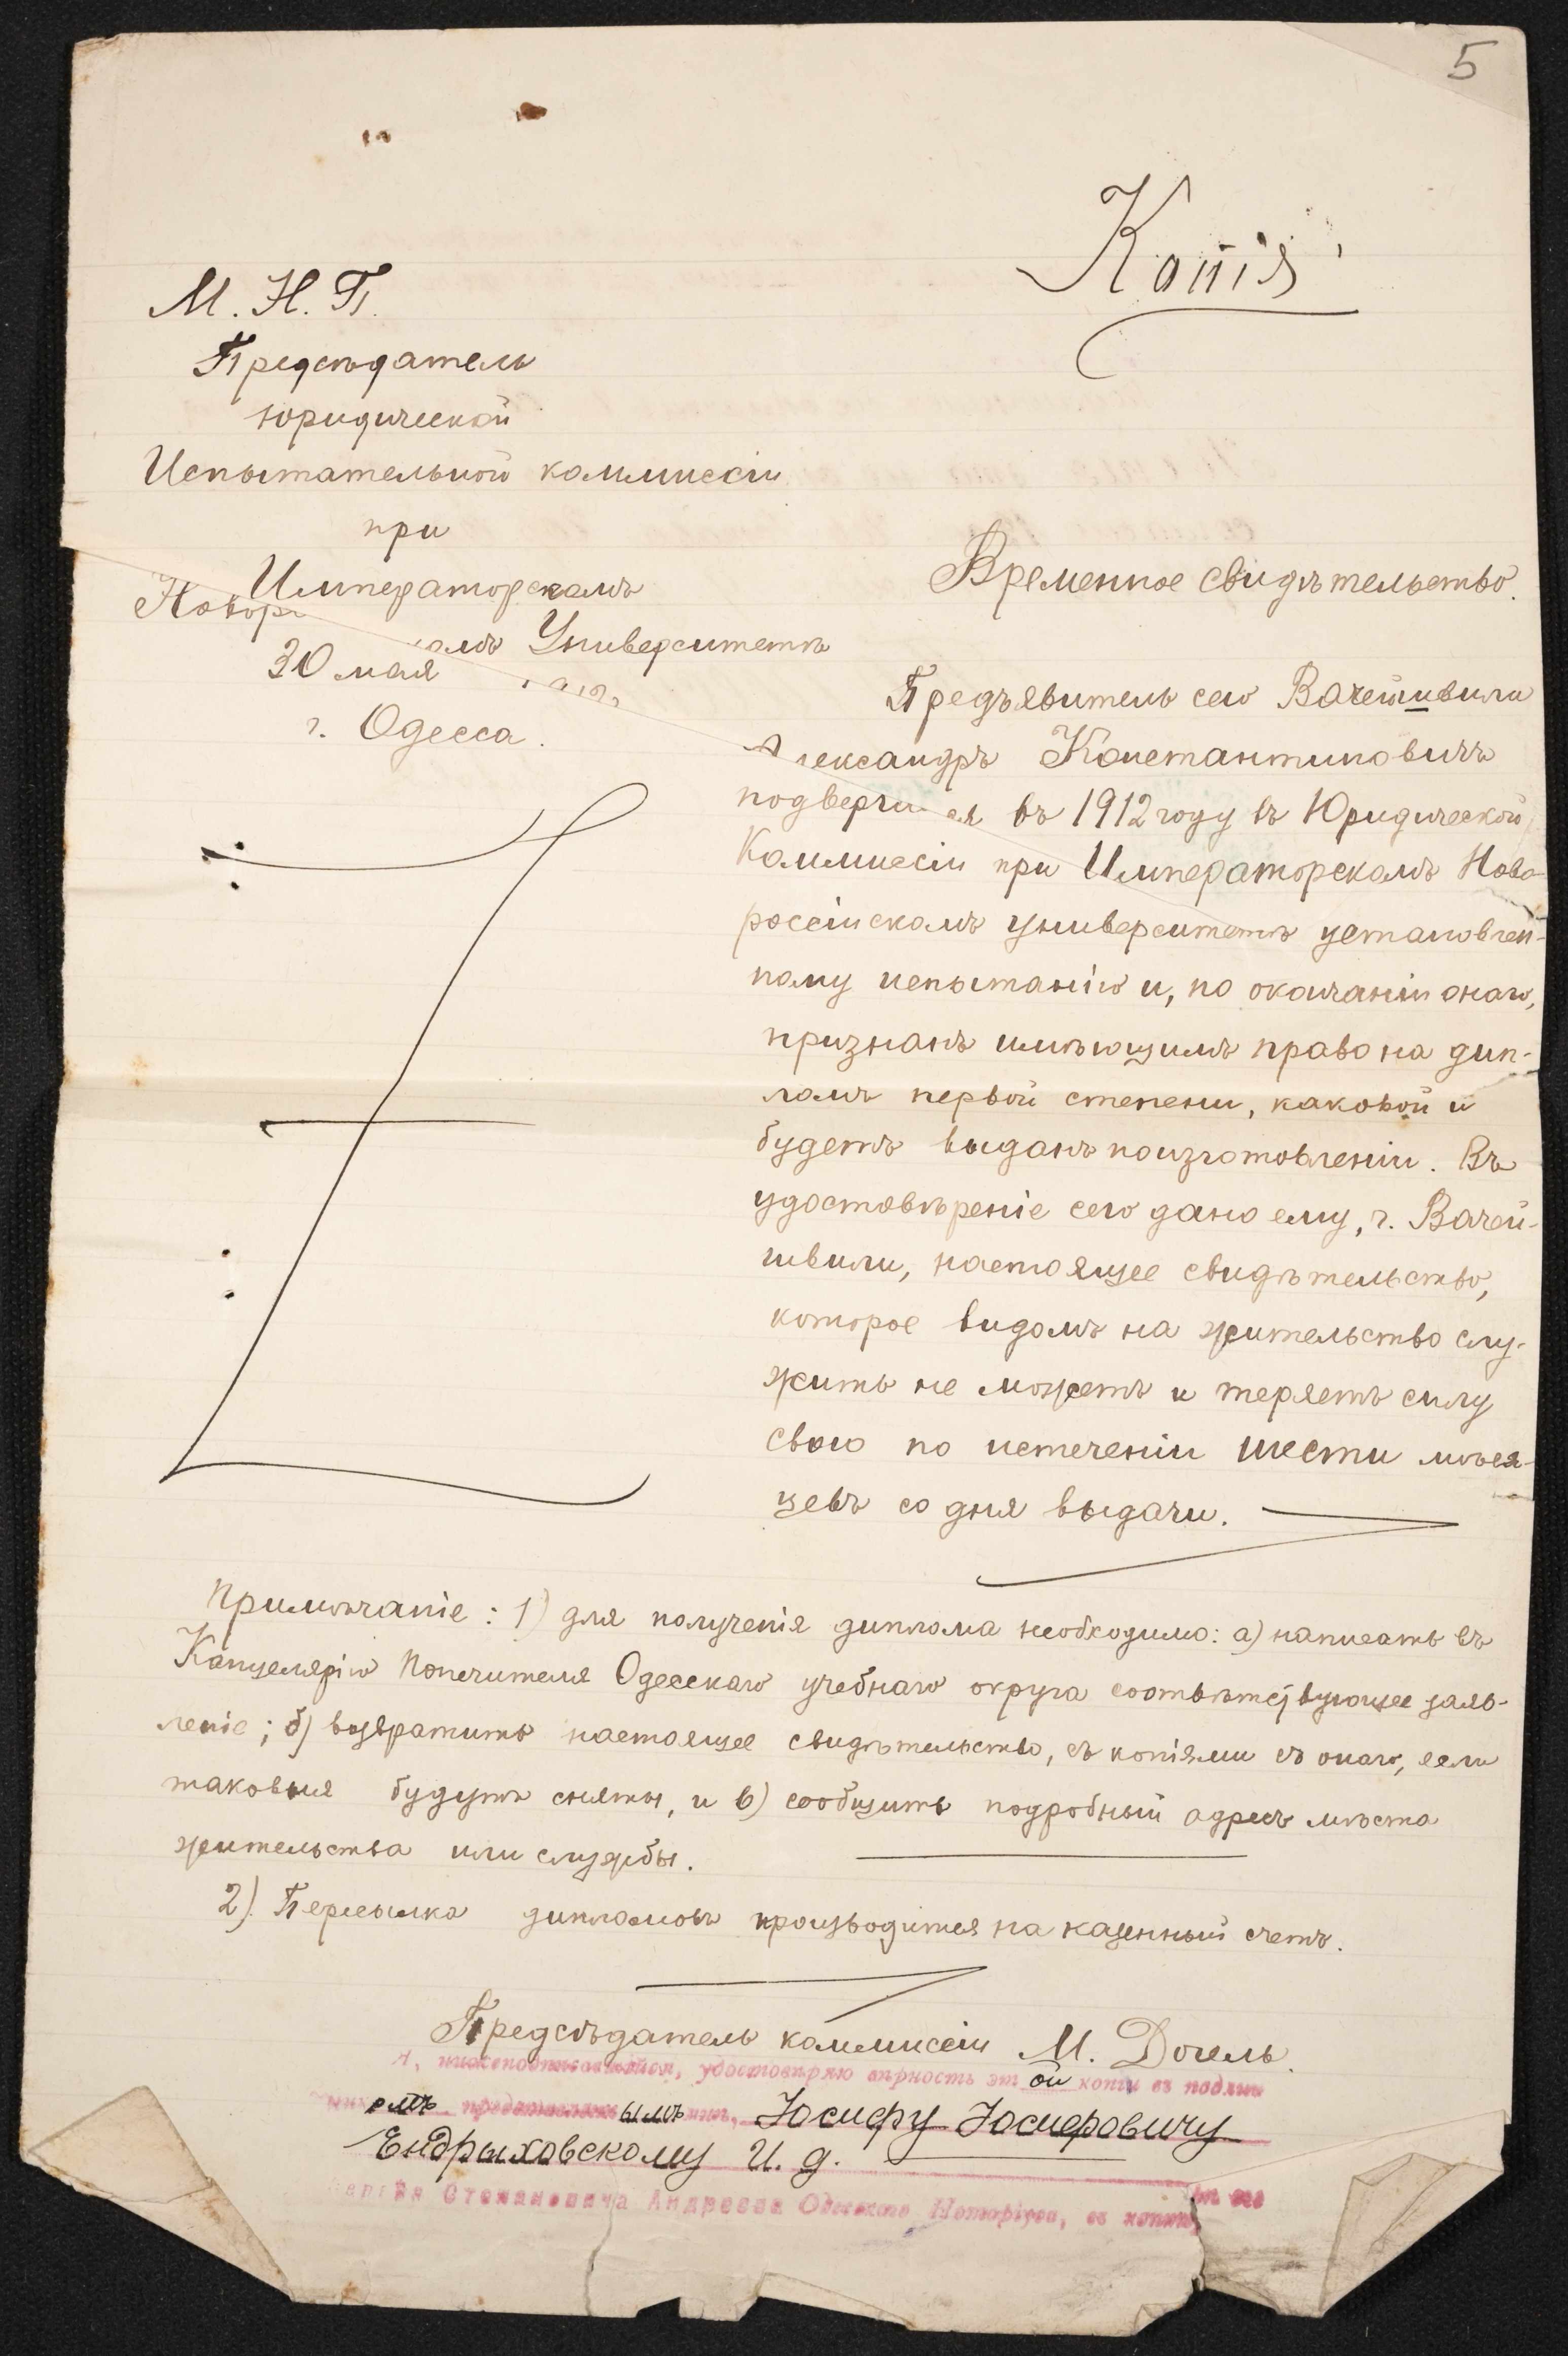 5
Копія
М. Н. П.
Предсѣдатель
юридической
Испытательной коммиссіи
при
Императорскомъ
Новор комъ Университетѣ
30 мая
г. Одесса.
Временное свидѣтельство.
Предъявитель сего Вачейшвили
Александръ Константиновичъ
подверг ся въ 1912 году въ Юридической
Коммиссіи при Императорскомъ Ново-
россійскомъ университетѣ установлен-
ному испытанію и, по окончаніи онаго,
признанъ имѣющимъ право на дип-
ломъ первой степени, каковой и
будетъ выданъ по изготовленіи. Въ
удостовѣреніе сего дано ему, г. Вачей-
швили, настоящее свидѣтельство,
которое видомъ на жительство слу-
жить не можетъ и теряетъ силу
свою по истеченіи шести мѣся-
цевъ со дня выдачи.
Примѣчаніе: 1) для полученія диплома необходимо: а) написать въ
Канцелярію Попечителя Одесскаго учебнаго округа соотвѣтствующее заяв-
леніе; б) возвратить настоящее свидѣтельство, съ копіями съ онаго, если
таковыя будутъ сняты, и в) сообщить подробный адресъ мѣста
жительства или службы.
2) Пересылка дипломовъ производится на казенный счетъ.
Предсѣдатель коммиссіи М. Догель.
Я, нижеподписавшійся, удостовѣряю вѣрность этой копіи съ подлин
никомъ представленнымъ мнѣ, Іосифу Іосифовичу
Ендрыховскому И. д.
Степановича Андреева Одесскаго Нотаріуса, въ конторѣ его